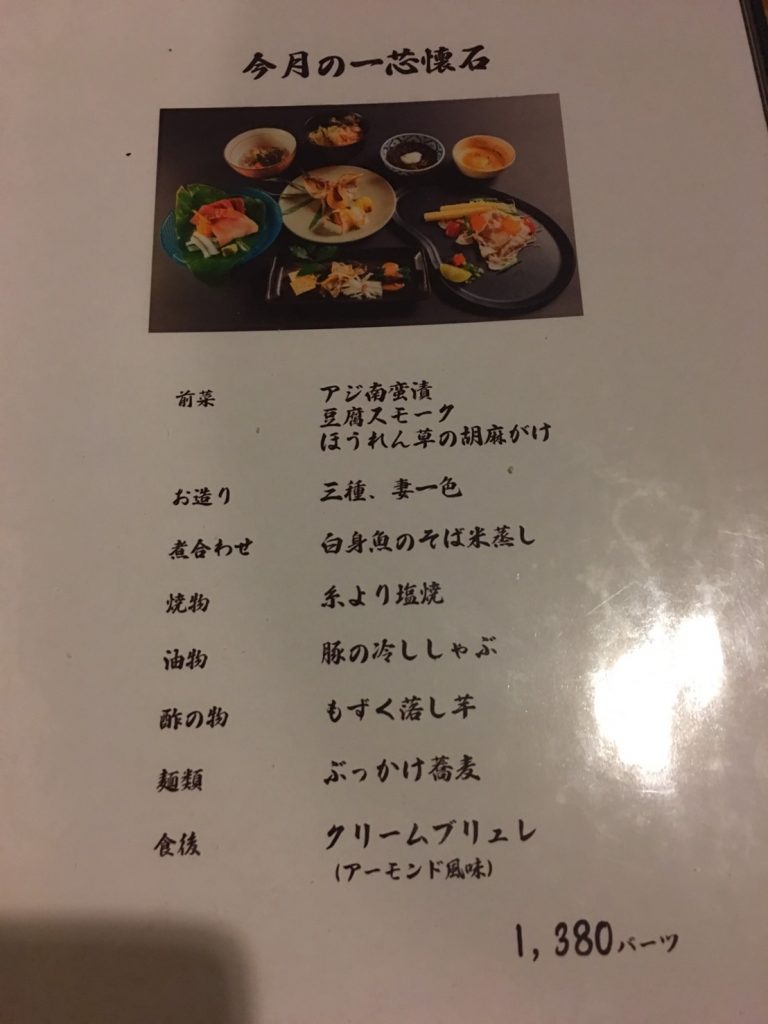 今月の一芯懐石
前菜 アジ南蛮漬
豆腐スモーク
ほうれん草の胡麻がけ
お造り 三種、妻一色
煮合わせ 白身魚のそば米蒸し
焼物 糸より塩焼
油物 豚の冷ししゃぶ
酢の物 もずく落し芋
麺類 ぶっかけ蕎麦
食後 クリームブリュレ
(アーモンド風味)
1,380バーツ